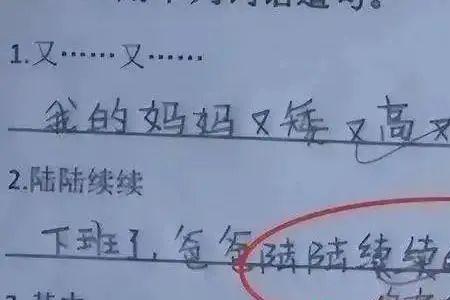 词语造句。
1.又……又……
我的妈妈又矮又高又
2.陆陆续续
下班了，爸爸陆陆续续